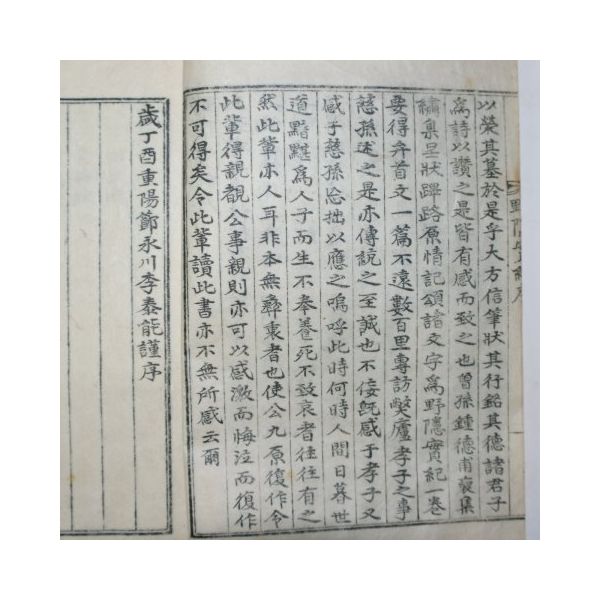 以榮其墓於是乎大方信筆狀其行銘其德諸君子
爲詩以讚之是皆有感而致之也曾孫鍾德甫裒集
繡集呈狀蹕路原情記頌諸文字爲野隱實紀一卷
要得弁首文一篇不遠數百里專訪獘廬孝子之事
慈孫述之是亦傳說之至誠也不侫旣感于孝子又
感于慈孫忘拙以應之嗚呼此時何時人間日暮世
道黯黮爲人子而生不奉養死不致哀者往往有之
然此輩亦人耳非本無彛裏者也使公九原復作令
此輩得親觀公事親則亦可以感激而悔泣而復作
不可得矣令此輩讀此書亦不無所感云爾
歲丁酉重陽節永川李泰能謹序
野隱實紀序